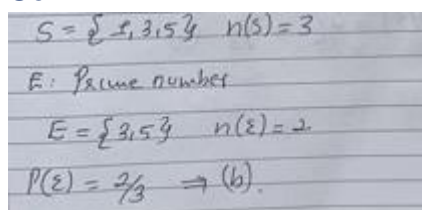 S = { 1, 3, 5 } n(s) = 3
E: Prime number
E = { 3, 5 } n(ε) = 2.
P(ε) = 2/3 ⇒ (b).